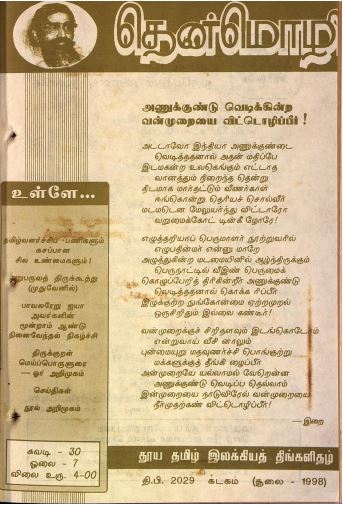 தென்மொழி
அணுக்குண்டு வெடிக்கின்ற
வன்முறையை விட்டொழிப்பீர் !
அட்டாவோ இந்தியா அணுக்குண்டை
வெடித்ததனால் அதன் மதிப்பே
இடமகன்ற உலகெங்கும் எட்டாத
வானத்தும் நிறைந்த தென்று
திடமாக மார்தட்டும் வீணர்காள்
ஈங்கொன்று தெரியச் சொல்வீர்
மடமடென மேலுயர்ந்து விட்டாரோ
வறுமைக்கோட் டின்கீ ழோரே!
எழுத்தறியாப் பெருமாளர் நூற்றுவரில்
எழுபதின்மர் என்னு மாறே
அழுத்துகின்ற மடமையினில் ஆழ்ந்திருக்கும்
பெருநாட்டில் வீஇண் பெருமைக்
கொழுப்பேறித் திரிகின்றீர் அணுக்குண்டு
வெடித்ததனால் கொக்க ரிப்பீர்
இழுக்குற்ற நுங்கோன்மை ஏற்றமுறல்
ஒருசிறிதும் இல்லை கண்டீர்!
வன்முறைக்குச் சிறிதளவும் இடங்கொடோம்
என்றுவாய் வீசி னாலும்
புன்மையுறு மதவுணர்ச்சி பொங்குற்று
மக்களுக்குத் தீங்கி ழைப்பீர்
அன்முறையே யல்லாமல் வேறென்ன
அணுக்குண்டு வெடிப்ப தெல்லாம்
இன்முறையை நாடுவிரேல் வன்முறையை
நீர்முதற்கண் விட்டொழிப்பீர்!
— இறை
உள்ளே...
தமிழ்வளர்ச்சிப் பணிகளும்
கசப்பான
சில உண்மைகளும் !
அறுபருவத் திருக்கூத்து
(முதுவேனில்)
பாவலரேறு ஐயா
அவர்களின்
மூன்றாம் ஆண்டு
நினைவேந்தல் நிகழ்ச்சி
திருக்குறள்
மெய்ப்பொருளுரை
— ஓர் அறிமுகம்
செய்திகள்
நூல் அறிமுகம்
சுவடி - 30
ஓலை - 7
விலை உரு. 4-00
தூய தமிழ் இலக்கியத் திங்களிதழ்
தி.பி. 2029 கடகம் (சூலை - 1998)